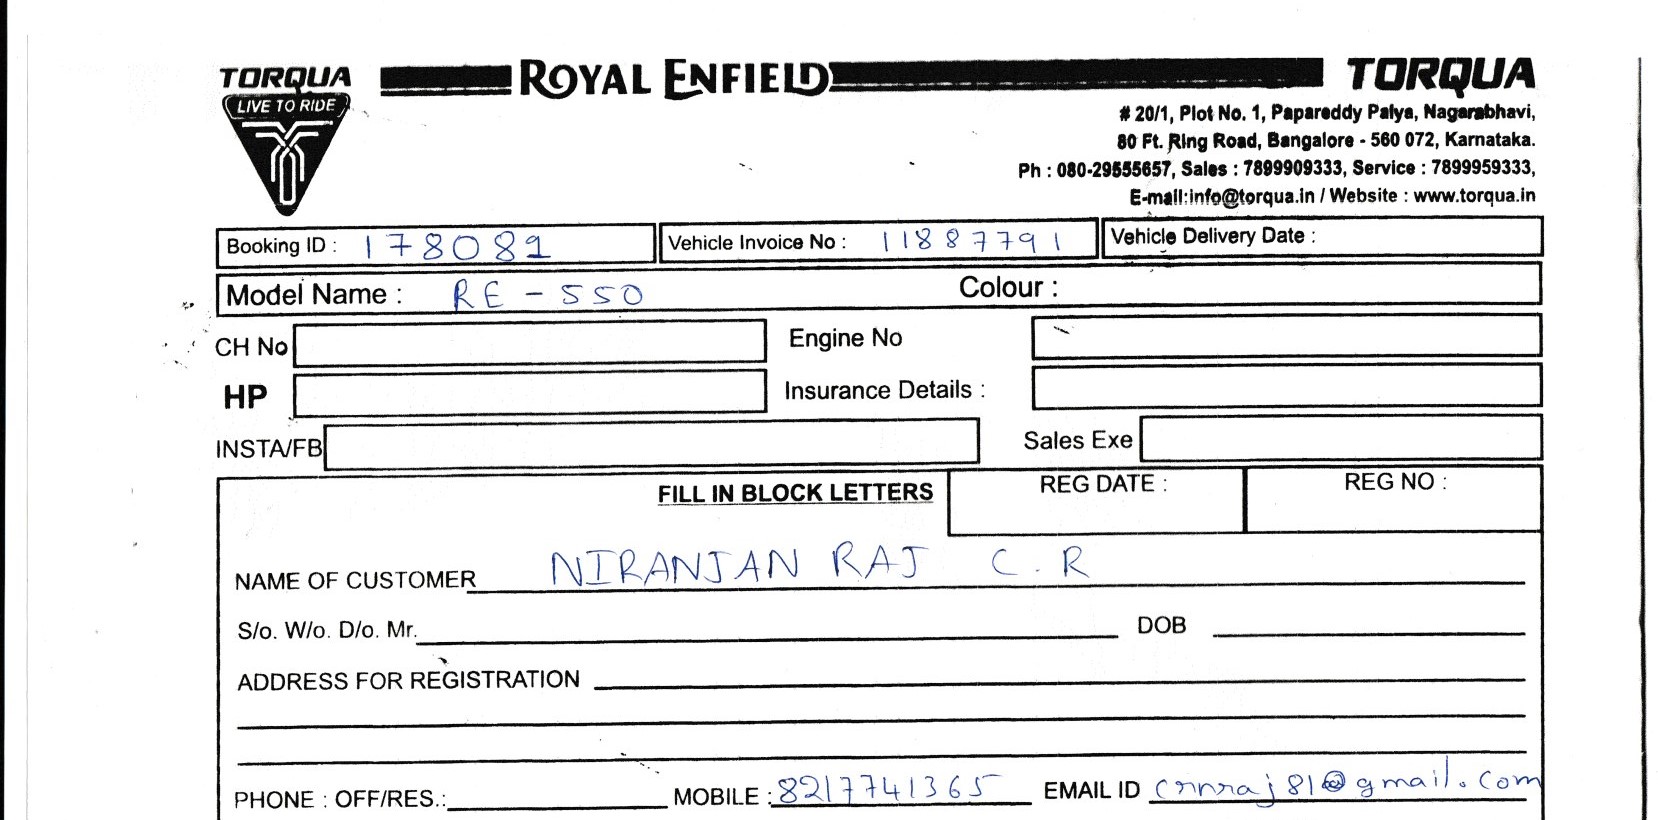 TORQUA ROYAL ENFIELD TORQUA
LIVE TO RIDE
# 20/1, Plot No. 1, Papareddy Palya, Nagarabhavi,
80 Ft. Ring Road, Bangalore - 560 072, Karnataka.
Ph : 080-29555657, Sales : 7899909333, Service : 7899959333,
E-mail:info@torqua.in / Website : www.torqua.in
Booking ID : 178081 Vehicle Invoice No : 11887791 Vehicle Delivery Date :
Model Name : RE - 550 Colour :
CH No Engine No
HP Insurance Details :
INSTA/FB Sales Exe
FILL IN BLOCK LETTERS REG DATE : REG NO :
NAME OF CUSTOMER NIRANJAN RAJ C.R
S/o. W/o. D/o. Mr. DOB
ADDRESS FOR REGISTRATION
PHONE : OFF/RES.: MOBILE : 8217741365 EMAIL ID crnraj81@gmail.com